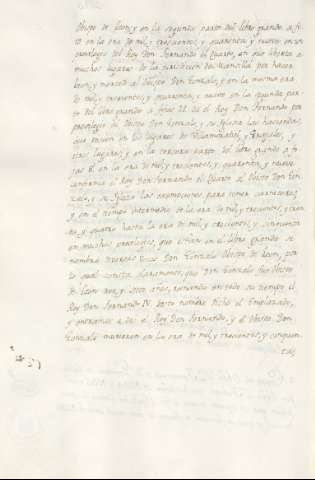 Obispo de Leon, y en la segunda parte del libro grande a fo.
en la era de mil, y trescientos, y quarenta, y nueve, en un
privilegio del Rey Don Fernando el Quarto, en que liberta a
muchos lugares de la jurisdicion de Mansilla por hacer
bien, y merced al Obispo Don Gonzalo, y en la misma era
de mil, y trescientos, y quarenta, y nueve en la segunda par-
te del libro grande a fojas 21 da el Rey Don Fernando por
privilegio al Obispo Don Gonzalo, y su Iglesia las haciendas,
que tienen en los lugares de Villamuñiel, y
otros lugares, y en la tercera parte del libro grande a fo-
jas 8 en la era de mil, y trescientos, y quarenta, y nueve
confirma el Rey Don Fernando el Quarto al Obispo Don Gon-
zalo, y su Iglesia las exempciones para
y en el tiempo intermedio de la era de mil, y trescientos, y
ta, y quatro hasta la era de mil, y trescientos, y cinquenta
en muchos privilegios, que estan en el libro grande se
nombra Don Gonzalo Obispo de Leon, por
lo qual consta claramente, que Don Gonzalo fue Obispo
de Leon años, reynando en todo su tiempo el
Rey Don Fernando IV deste nombre dicho el Emplazado,
y entrambos a dos el Rey Don Fernando, y el Obispo Don
Gonzalo murieron en la era de mil, y trescientos, y cinquen-